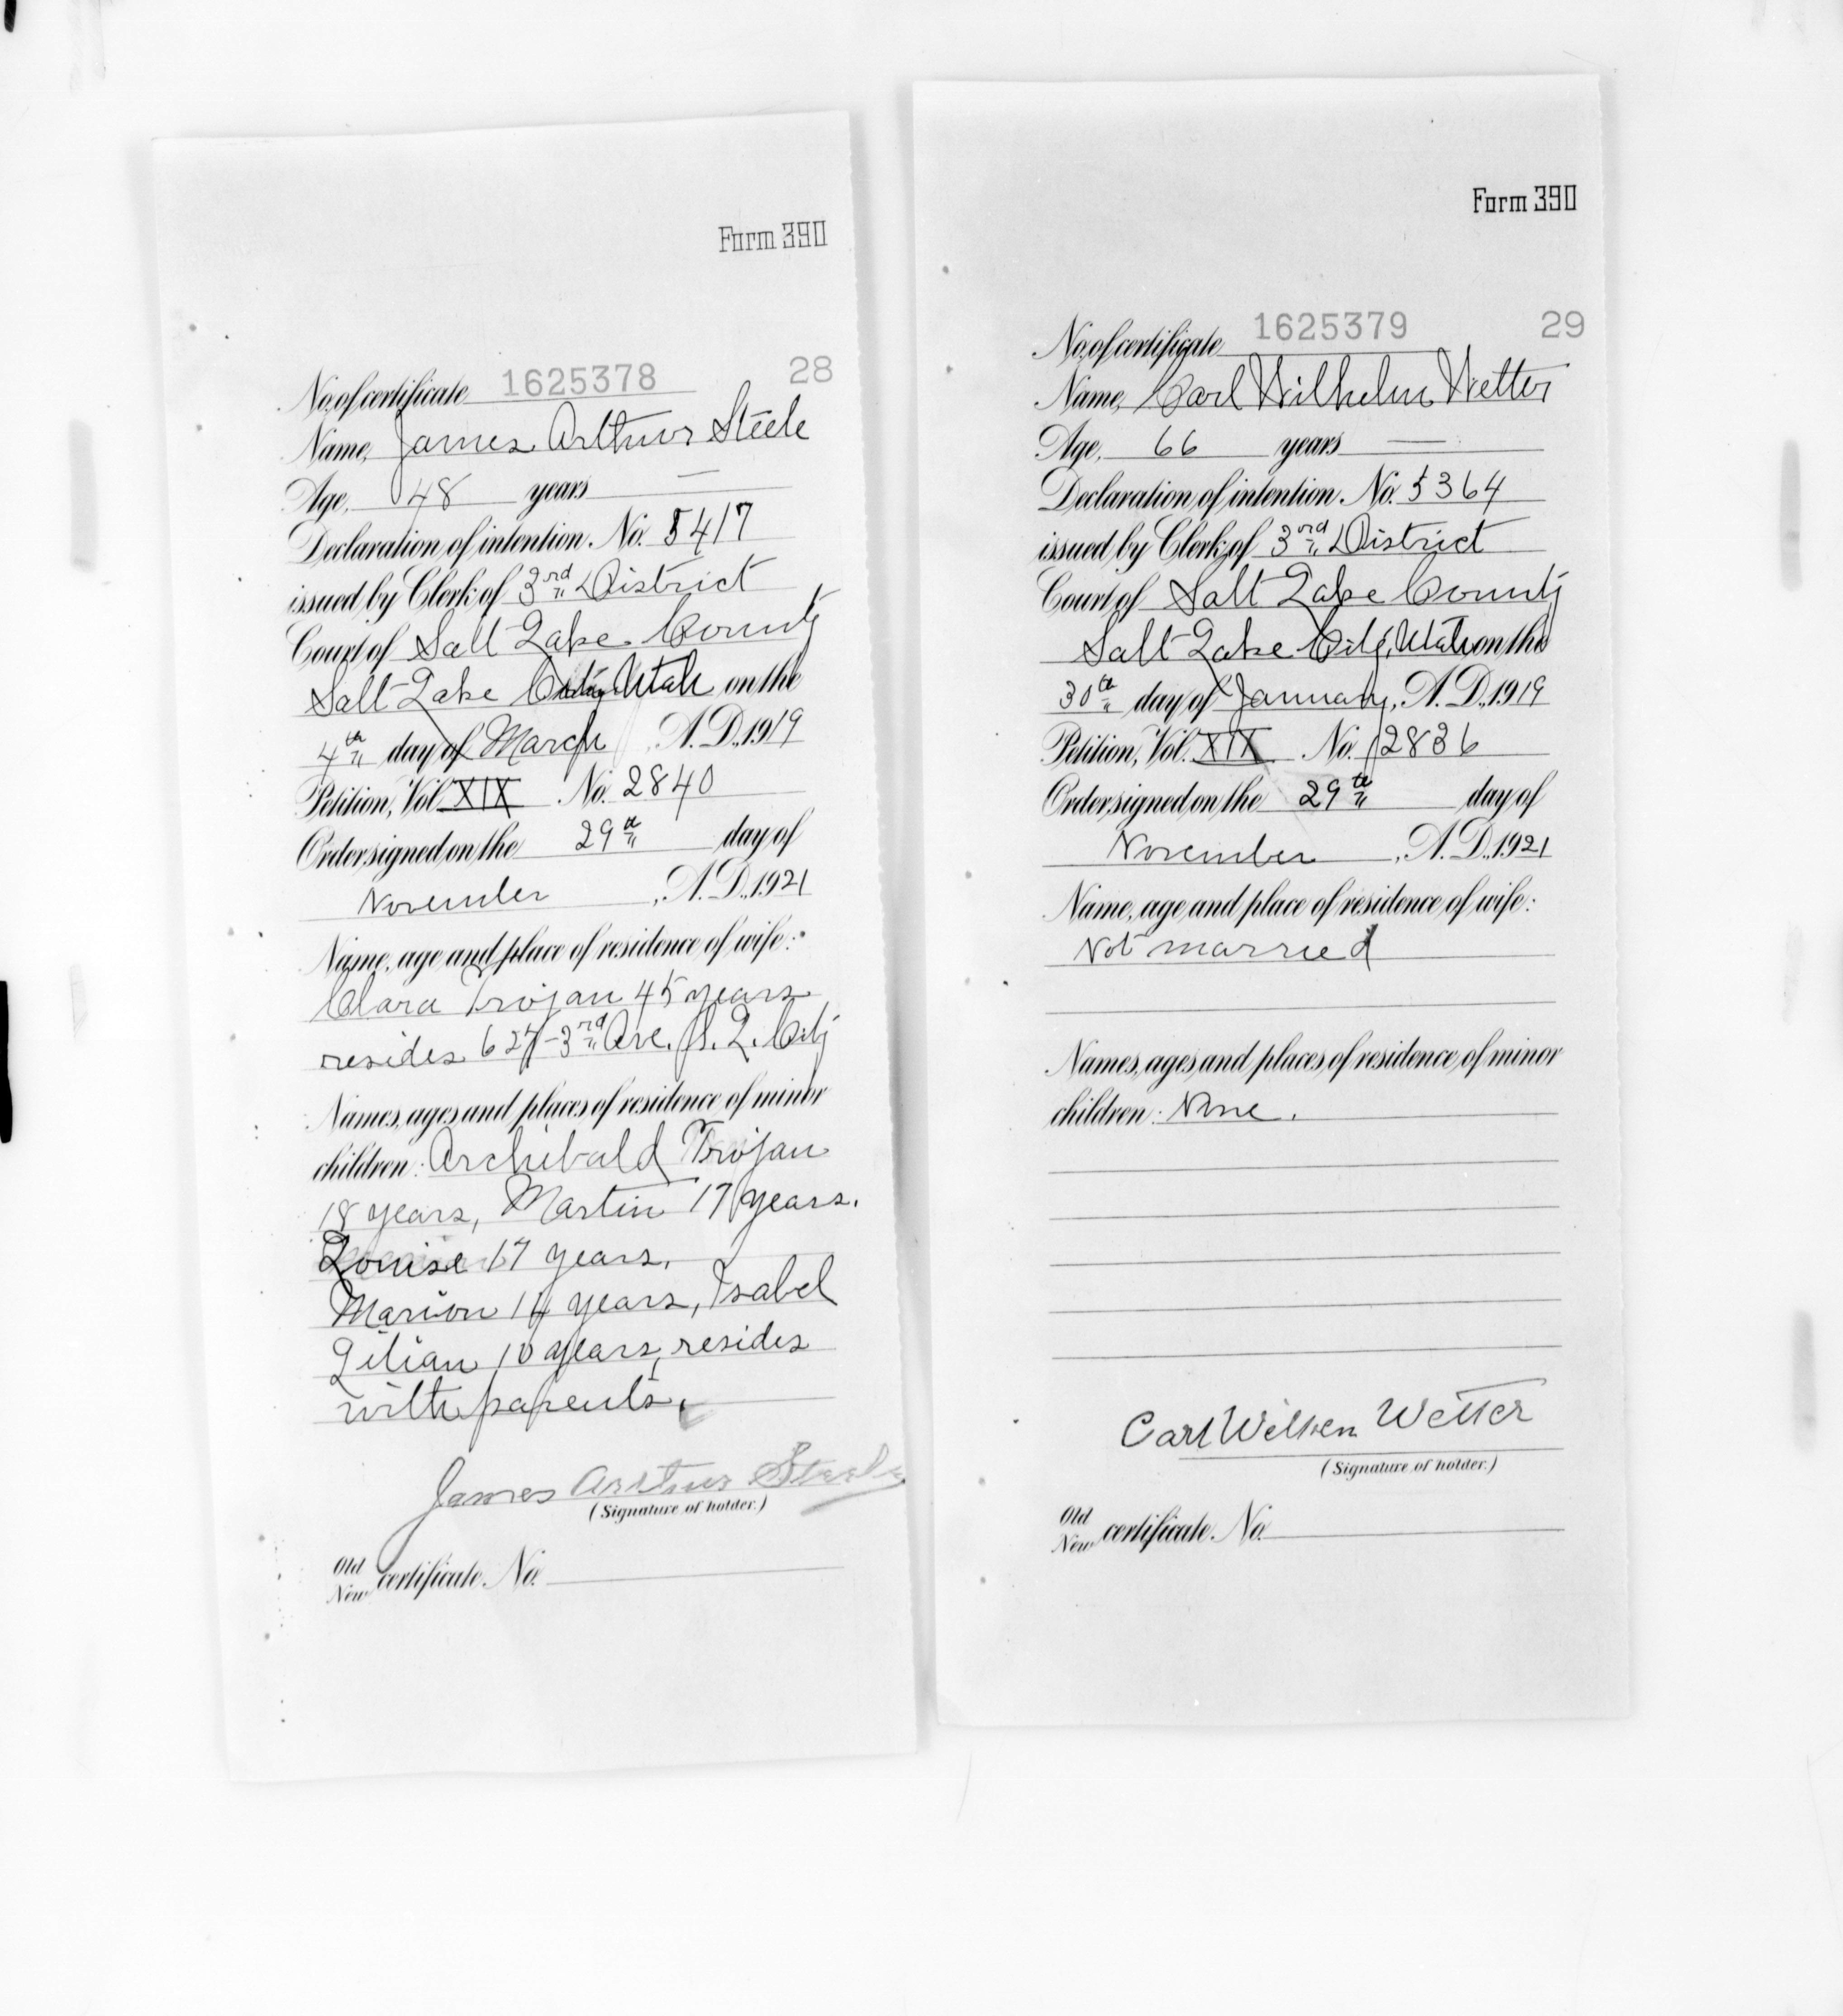 Form 390
No. of certificate 1625378 28
Name, James Arthur Steele
Age, 48 years —
Declaration of intention No. 5417
issued by Clerk of 3rd District
Court of Salt Lake County
Salt Lake City Utah on the
4th day of March, A.D., 1919
Petition, Vol. XIX No. 2840
Order signed on the 29th day of
November, A.D., 1921
Name, age and place of residence of wife:
Clara Trojan 45 years
resides 627-3rd Ave. S. L. City
Names, ages and places of residence of minor
children: Archibald Trojan
18 years, Martin 17 years.
Louise 17 years,
Marion 14 years, Isabel
Lilian 10 years, resides
with parents,
James Arthur Steele
(Signature of holder.)
Old
New certificate No.
Form 390
No. of certificate 1625379 29
Name, Carl Wilhelm Wetter
Age, 66 years —
Declaration of intention No. 5364
issued by Clerk of 3rd District
Court of Salt Lake County
Salt Lake City, Utah on the
30th day of January, A.D., 1919
Petition, Vol. XIX No. 2836
Order signed on the 29th day of
November, A.D., 1921
Name, age and place of residence of wife:
Not married
Names, ages and places of residence of minor
children: None.
Carl Wetter
(Signature of holder.)
Old
New certificate No.